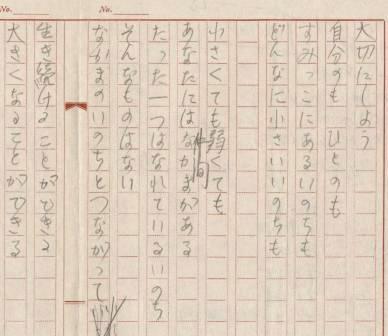 No.
No.
大切にしよう
自分のも ひとのも
すみっこにあるいのちも
どんなに小さいいのちも
小さくても弱くても
あなたにはなかまがある
たった一つはなれているいのち
そんなものはない
なかまのいのちとつながって
生き続けることができる
大きくなることができる